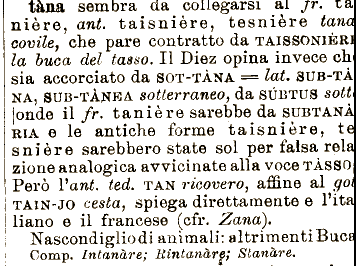 tàna sembra da collegarsi al fr. ta
nière, ant. taisnière, tesnière tana
covile, che pare contratto da TAISSONIÈRE
la buca del tasso. Il Diez opina invece che
sia accorciato da SOT-TÀNA = lat. SUB-TÀ
NA, SUB-TÀNEA sotterraneo, da SÙBTUS sott
onde il fr. tanière sarebbe da SUBTANÀ
RIA e le antiche forme taisnière, te
snière sarebbero state sol per falsa rela
zione analogica avvicinate alla voce TÀSSO
Però l'ant. ted. TAN ricovero, affine al got
TAIN-JO cesta, spiega direttamente e l'ita
liano e il francese (cfr. Zana).
Nascondiglio di animali: altrimenti Buca
Comp. Intanàre; Rintanàre; Stanàre.